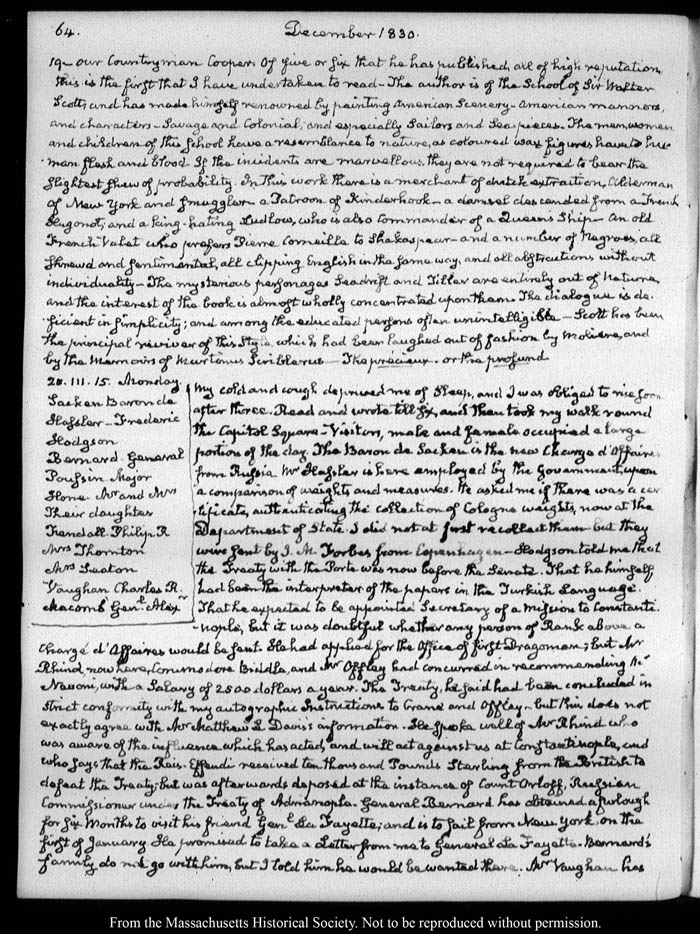 64.
December 1830.
19— our Countryman Cooper. Of five or six that he has published, all of high reputation
this is the first that I have undertaken to read— The author is of the School of Sir Walter
Scott; and has made himself renowned by painting American Scenery— American manners,
and characters— Savage and Colonial; and especially Sailors and Sea-pieces. The men, women
and children of this School have a resemblance to nature, as coloured wax figures have to hu-
man flesh and blood. If the incidents are marvellous, they are not required to bear the
slightest shew of probability. In this work there is a merchant of dutch extraction, Alderman
of New York and smuggler— a Patroon of Kinderhook— a damsel descended from a French
Hugonot; and a king-hating Ludlow, who is also Commander of a Queen's Ship— An old
French Valet who prefers Pierre Corneille to Shakspear— and a number of Negroes, all
shrewd and sentimental, all clipping English in the same way, and all abstractions without
individuality— The mysterious personages Seadrift and Tiller are entirely out of Nature,
and the interest of the book is almost wholly concentrated upon them. The dialogue is de-
ficient in simplicity; and among the educated persons often unintelligible— Scott has been
the principal reviver of this Style, which had been laughed out of fashion by Moliere, and
by the Memoirs of Martinus Scriblerus— The précieux, or the profund.
20. III. 15. Monday.
Sacken Baron de
Hassler— Frederic
Hodgson
Bernard— General
Poussin Major
Hone Mr and Mrs
Their daughter
Kendall Philip R
Mrs Thornton
Mrs Seaton
Vaughan Charles R.
Macomb Genl. Alexr
My cold and cough deprived me of sleep, and I was obliged to rise soon
after three. Read and wrote till six, and then took my walk round
the Capitol Square— Visitors, male and female occupied a large
portion of the day. The Baron de Sacken is the new Chargé d'Affaires
from Russia Mr Hassler is here employed by the Government, upon
a comparison of weights and measures. He asked me if there was a cer-
tificate, authenticating the collection of Cologne weights, now at the
Department of State. I did not at first recollect them— but they
were sent by J. M. Forbes from Copenhagen— Hodgson told me that
the Treaty with the Porte was now before the Senate. That he himself
had been the interpreter of the papers in the Turkish Language.
That he expected to be appointed Secretary of a Mission to Constanti-
nople, but it was doubtful whether any person of Rank above a
Chargé d'Affaires would be sent. He had applied for the Office of first Dragoman; but Mr
Rhind, now here, Commodore Biddle, and Mr Offley had concurred in recommending Mr
Navoni, with a Salary of 2500 dollars a year. The Treaty, he said had been concluded in
strict conformity with my autographic Instructions to Crane and Offley— but this does not
exactly agree with Mr Matthew L Davis's information. He spoke well of Mr Rhind who
was aware of the influence which has acted, and will act against us at Constantinople, and
who says that the Reis-Effendi received ten thousand Pounds Sterling from the British to
defeat the Treaty; but was afterwards deposed at the instance of Count Orloff, Russian
Commissioner under the Treaty of Adrianople. General Bernard has obtained a furlough
for six Months to visit his friend Genl. La Fayette; and is to sail from New York, on the
first of January. He promised to take a Letter from me to General La Fayette. Bernard's
family do not go with him, but I told him he would be wanted there. Mr Vaughan has
From the Massachusetts Historical Society. Not to be reproduced without permission.